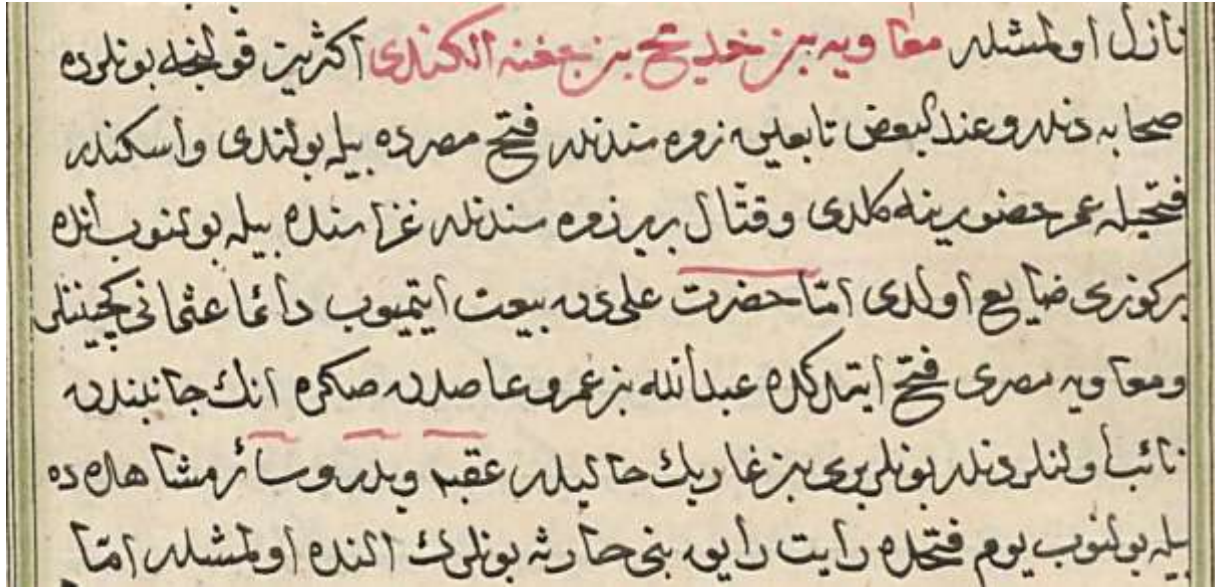 نازل اولمشلدر معاویه بن خدیج بن جفنه الكندی اكثرین قولنجه بونلرده
صحابه دندر وعند البعض تابعین زمره سندندر فتح مصرده بیله بولندی واسكندر
فتحیله عمر حضورینه كلدی وقتال بربر زمره سندندر غزاسنده بیله بولنوب انده
بر كوزی ضایع اولدی امّا حضرت علی دن بیعت ایتمیوب دائما عثمانی كچینتلی
ومعاویه مصری فتح ایتدكده عبدالله بن عمرو عاصدن صكره انك جانبندن
نائب اولنلردندر بونلر بری بن عازبك خالیدر عقبه وبدر وسائر مشاهده ده
بیله بولنوب یوم فتحده رایت بنی حارثه بونلرك النده اولمشلدر امّا